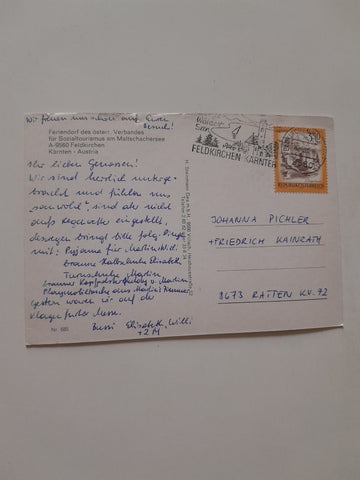 Wir freuen uns schon auf Euren
Besuch!
Feriendorf des österr. Verbandes
für Sozialtourismus am Maltschachersee
A-9560 Feldkirchen
Kärnten - Austria
Ihr lieben Genossen!
Wir sind herrlich unterge-
bracht und fühlen uns
"sauwohl", sind aber nicht
aufs Regenwetter eingestellt,
deswegen bringt bitte folg. Dinge
mit: Pyjama für Martin,
braune Halbschuhe Elisabeth
Turnschuhe Martin
braunes v. Martin
aus Martins Zimmer
Gestern waren wir auf der
Klagenfurter Messe.
Bussi Elisabeth, Willi
+2M
Nr. 685
FELDKIRCHEN KÄRNTEN
REPUBLIK ÖSTERREICH
JOHANNA PICHLER
+FRIEDRICH KAINRATH
8673 RATTEN K.V. 92